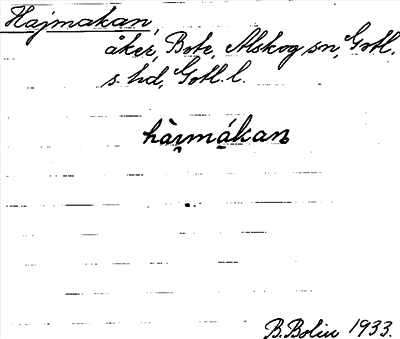 Hajmakan,
åker, Bote, Alskog sn, Gotl.
s. hd, Gotl. l.
hàı̯mákan
B. Bolin 1933.